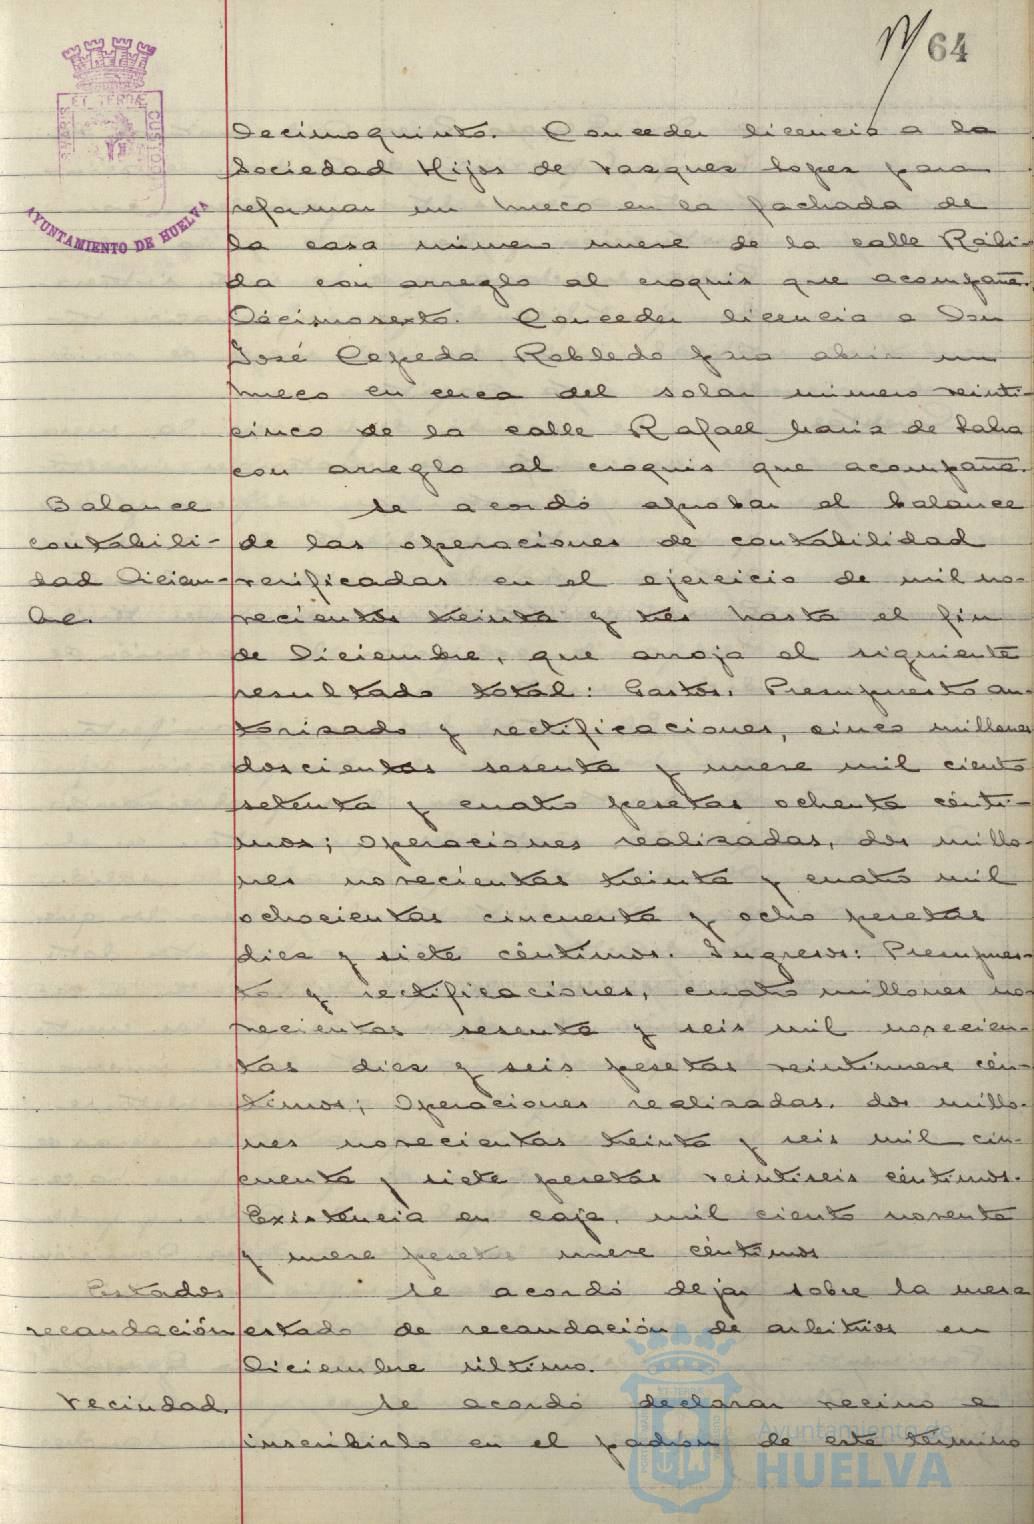 64
PORTUS MARIS ET TERRAE CUSTODIA
AYUNTAMIENTO DE HUELVA
Decimoquinto. Conceder licencia a la
Sociedad Hijos de Vasques Lopes para
reformar un hueco en la fachada de
la casa número nueve de la calle Rábi-
da con arreglo al croquis que acompaña.
Décimosexto. Conceder licencia a Don
José Cepeda Robledo para abrir un
hueco en cerca del solar número veinti-
cinco de la calle Rafael María de Labra
con arreglo al croquis que acompaña.
Balance
contabili-
dad Diciem-
bre.
Se acordó aprobar el balance
de las operaciones de contabilidad
verificadas en el ejercicio de mil no-
vecientos treinta y tres hasta el fin
de Diciembre, que arroja el siguiente
resultado total: Gastos. Presupuesto au-
torisado y rectificaciones, cinco millones
doscientas sesenta y nueve mil ciento
setenta y cuatro pesetas ochenta cénti-
mos; Operaciones realizadas, dos millo-
nes novecientas treinta y cuatro mil
ochocientas cincuenta y ocho pesetas
dies y siete céntimos. Ingresos: Presupues-
to y rectificaciones, cuatro millones no-
vecientas sesenta y seis mil novecien-
tas dies y seis pesetas veintinueve cén-
timos; Operaciones realizadas. dos millo-
nes novecientas treinta y seis mil cin-
cuenta y siete pesetas veintiseis céntimos.
Existencia en caja, mil ciento noventa
y nueve pesetas nueve céntimos
Estados
recaudación
Se acordó dejar sobre la mesa
estado de recaudación de arbitrios en
Diciembre último.
Vecindad.
Se acordó declarar vecino e
inscribirlo en el padrón de este término
Ayuntamiento de
HUELVA